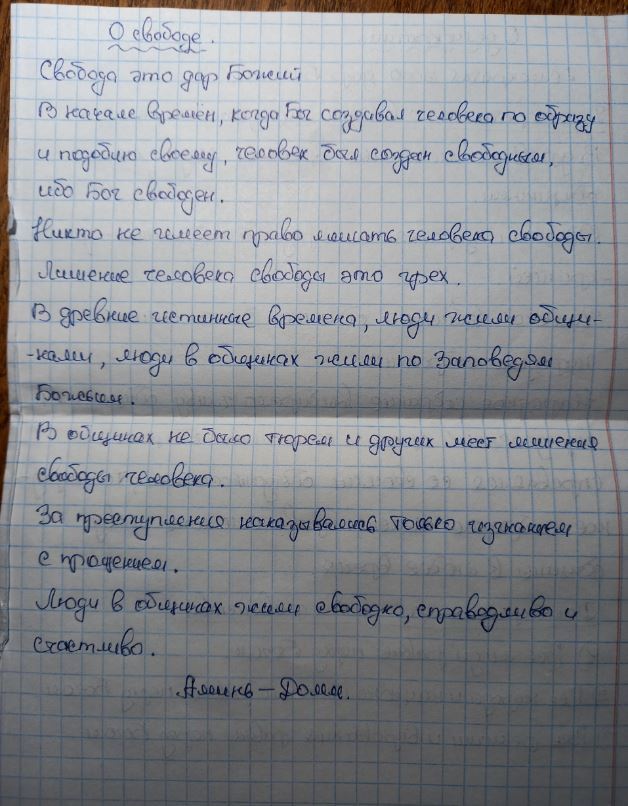 О свободе.
Свобода это дар Божий
В начале времён, когда Бог создавал человека по образу
и подобию своему, человек был создан свободным,
ибо Бог свободен.
Никто не имеет право лишать человека свободы.
Лишение человека свободы это грех.
В древние истинные времена, люди жили общи-
-нами, люди в общинах жили по Заповедям
Божьим.
В общинах не было тюрем и других мест лишения
свободы человека.
За преступления наказывались только изгнанием
с прощением.
Люди в общинах жили свободно, справедливо и
счастливо.
Аминь –